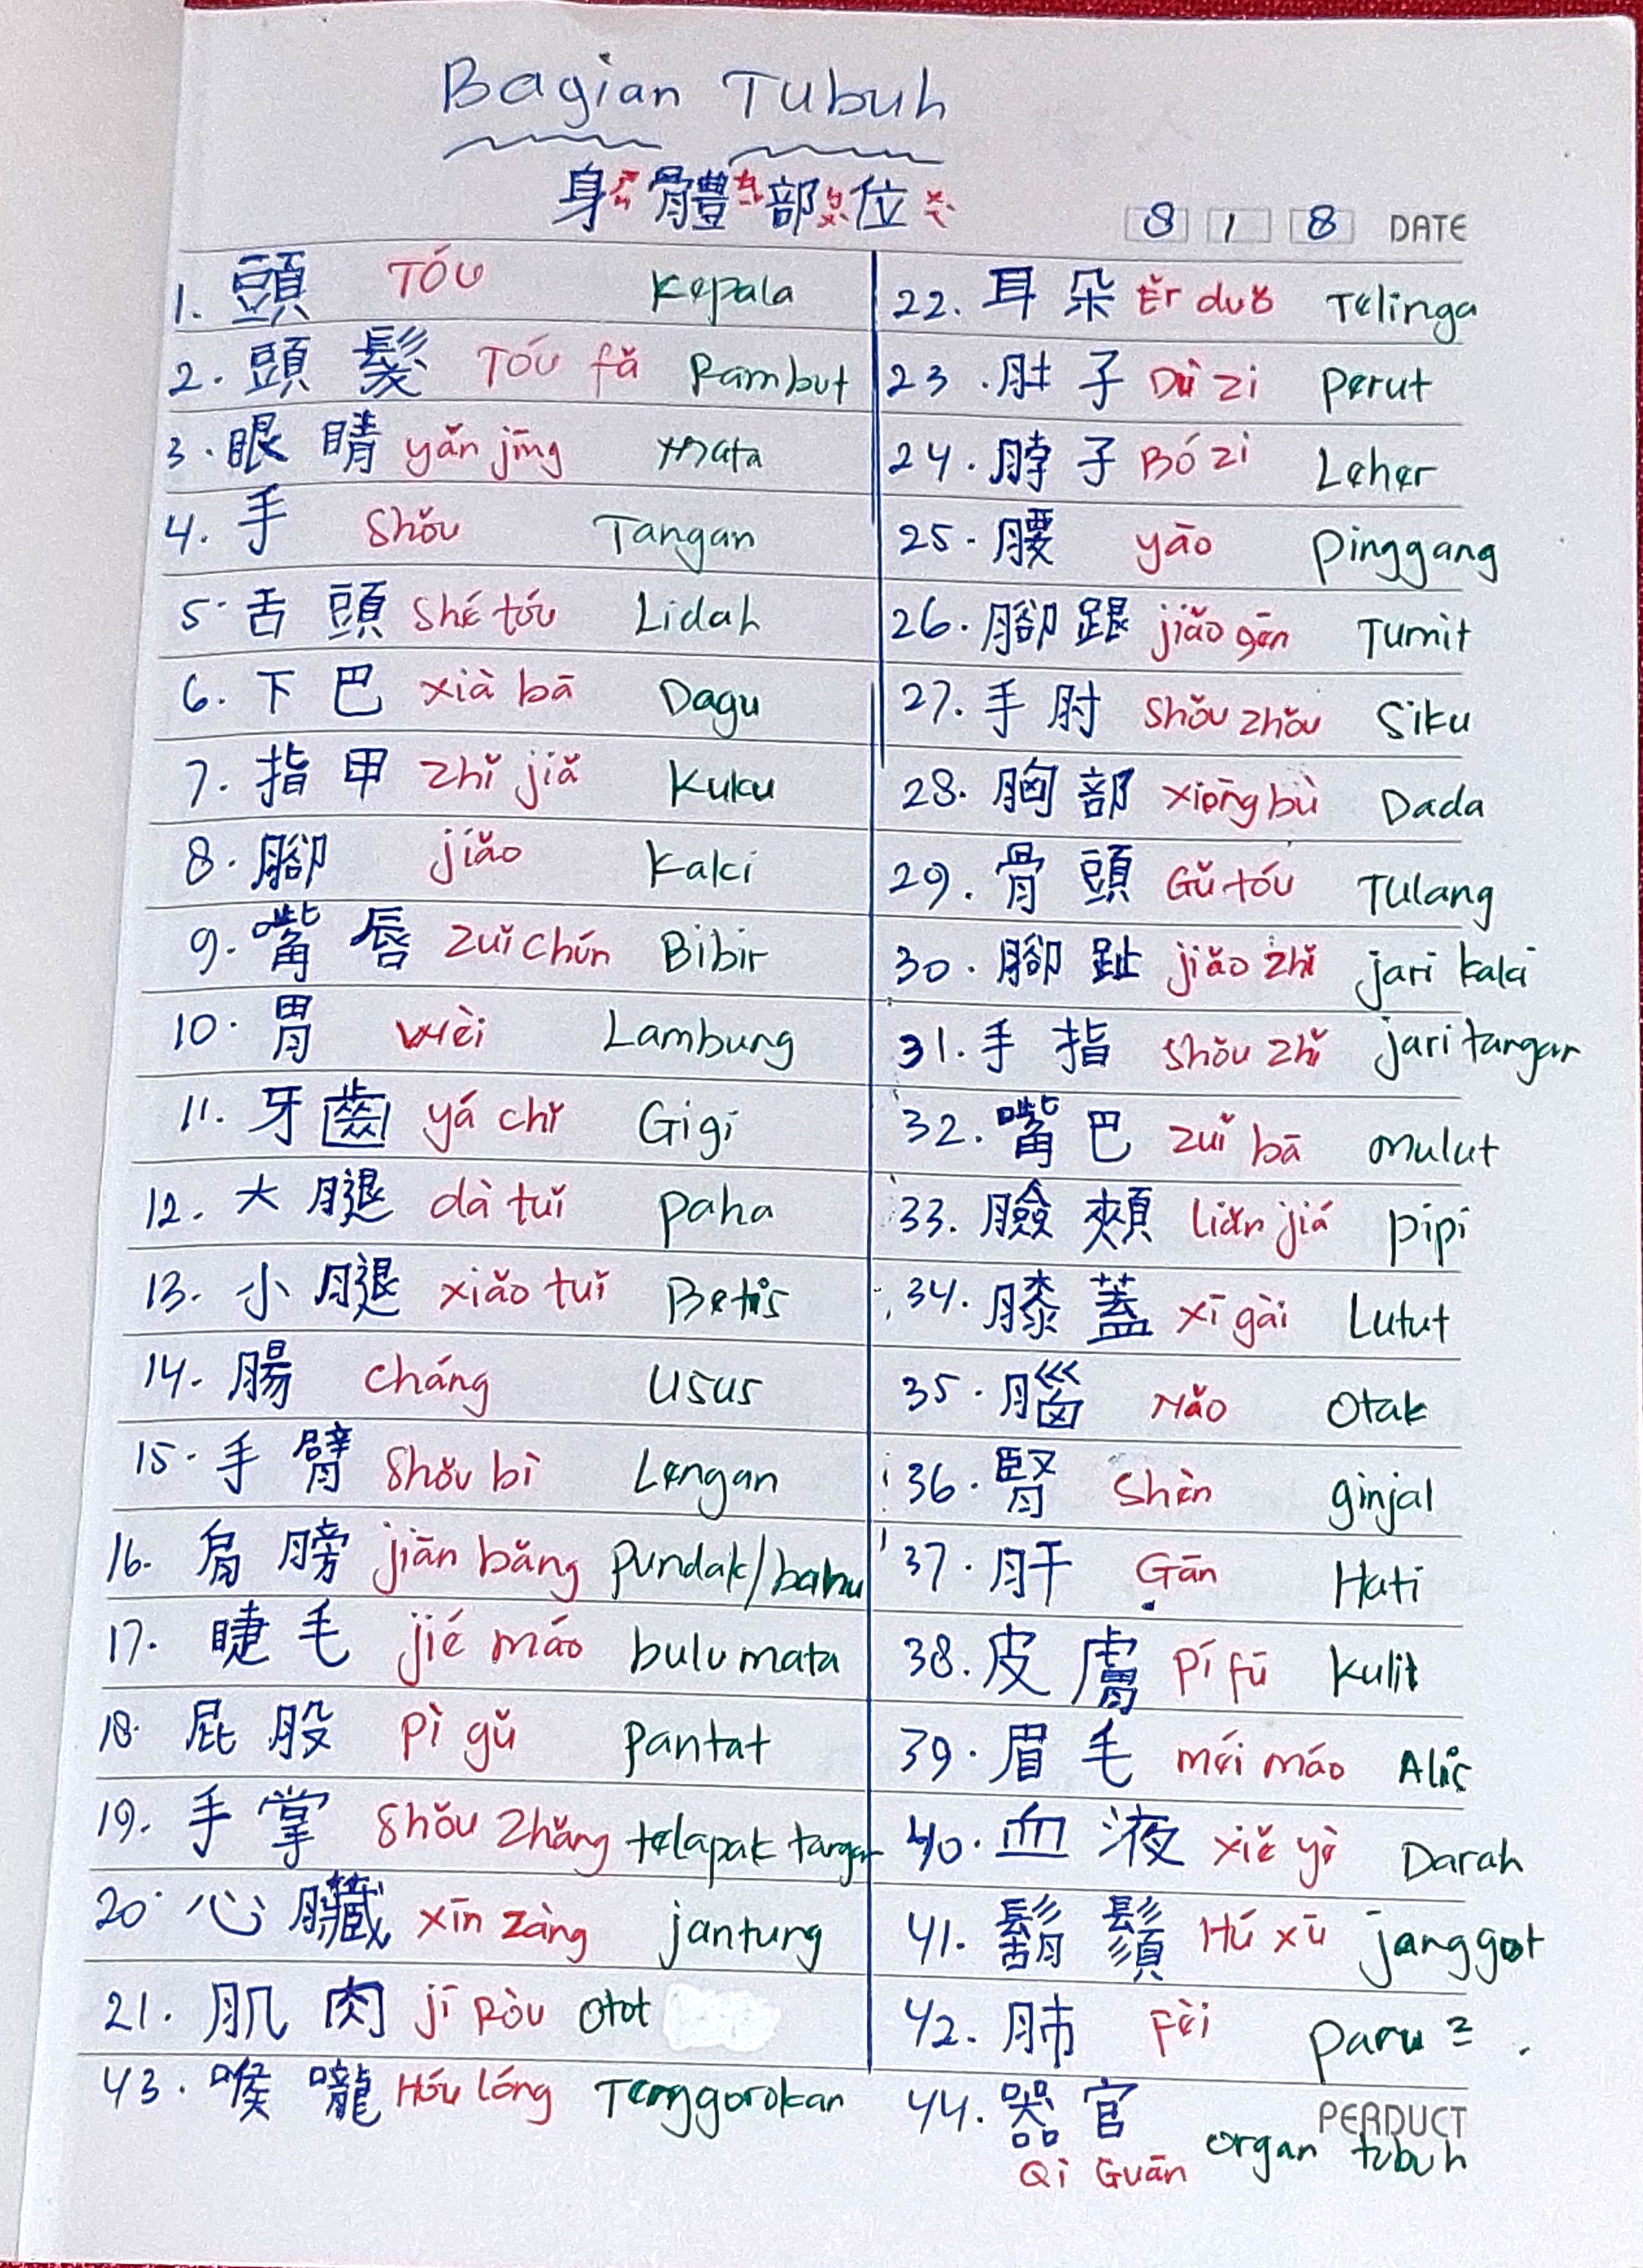 Bagian Tubuh
身體部位
8 1 8 DATE
1. 頭 Tóu Kepala
2. 頭髮 Tóu fǎ Rambut
3. 眼睛 yǎn jīng Mata
4. 手 Shǒu Tangan
5. 舌頭 Shé tóu Lidah
6. 下巴 xià bā Dagu
7. 指甲 Zhǐ jiǎ Kuku
8. 腳 jiǎo Kaki
9. 嘴唇 Zuǐ chún Bibir
10. 胃 wèi Lambung
11. 牙齒 yá chǐ Gigi
12. 大腿 dà tuǐ paha
13. 小腿 xiǎo tuǐ Betis
14. 腸 cháng Usus
15. 手臂 Shǒu bì Lengan
16. 肩膀 jiān bǎng pundak/bahu
17. 睫毛 jié máo bulu mata
18. 屁股 pì gǔ pantat
19. 手掌 Shǒu Zhǎng telapak tangan
20. 心臟 xīn zàng jantung
21. 肌肉 jī Ròu Otot
22. 耳朵 Ěr duǒ Telinga
23. 肚子 Dù zi perut
24. 脖子 Bó zi Leher
25. 腰 yāo pinggang
26. 腳跟 jiǎo gēn Tumit
27. 手肘 Shǒu zhǒu Siku
28. 胸部 xiōng bù Dada
29. 骨頭 Gǔ tóu Tulang
30. 腳趾 jiǎo zhǐ jari kaki
31. 手指 Shǒu zhǐ jari tangan
32. 嘴巴 Zuǐ bā mulut
33. 臉頰 Liǎn jiá pipi
34. 膝蓋 xī gài Lutut
35. 腦 Nǎo Otak
36. 腎 Shèn ginjal
37. 肝 Gān Hati
38. 皮膚 pí fū Kulit
39. 眉毛 méi máo Alis
40. 血液 xiě yè Darah
41. 鬍鬚 Hú xū janggot
42. 肺 Fèi paru 2
43. 喉嚨 Hóu lóng Tenggorokan
44. 器官 organ tubuh
Qì Guān
PERDUCT